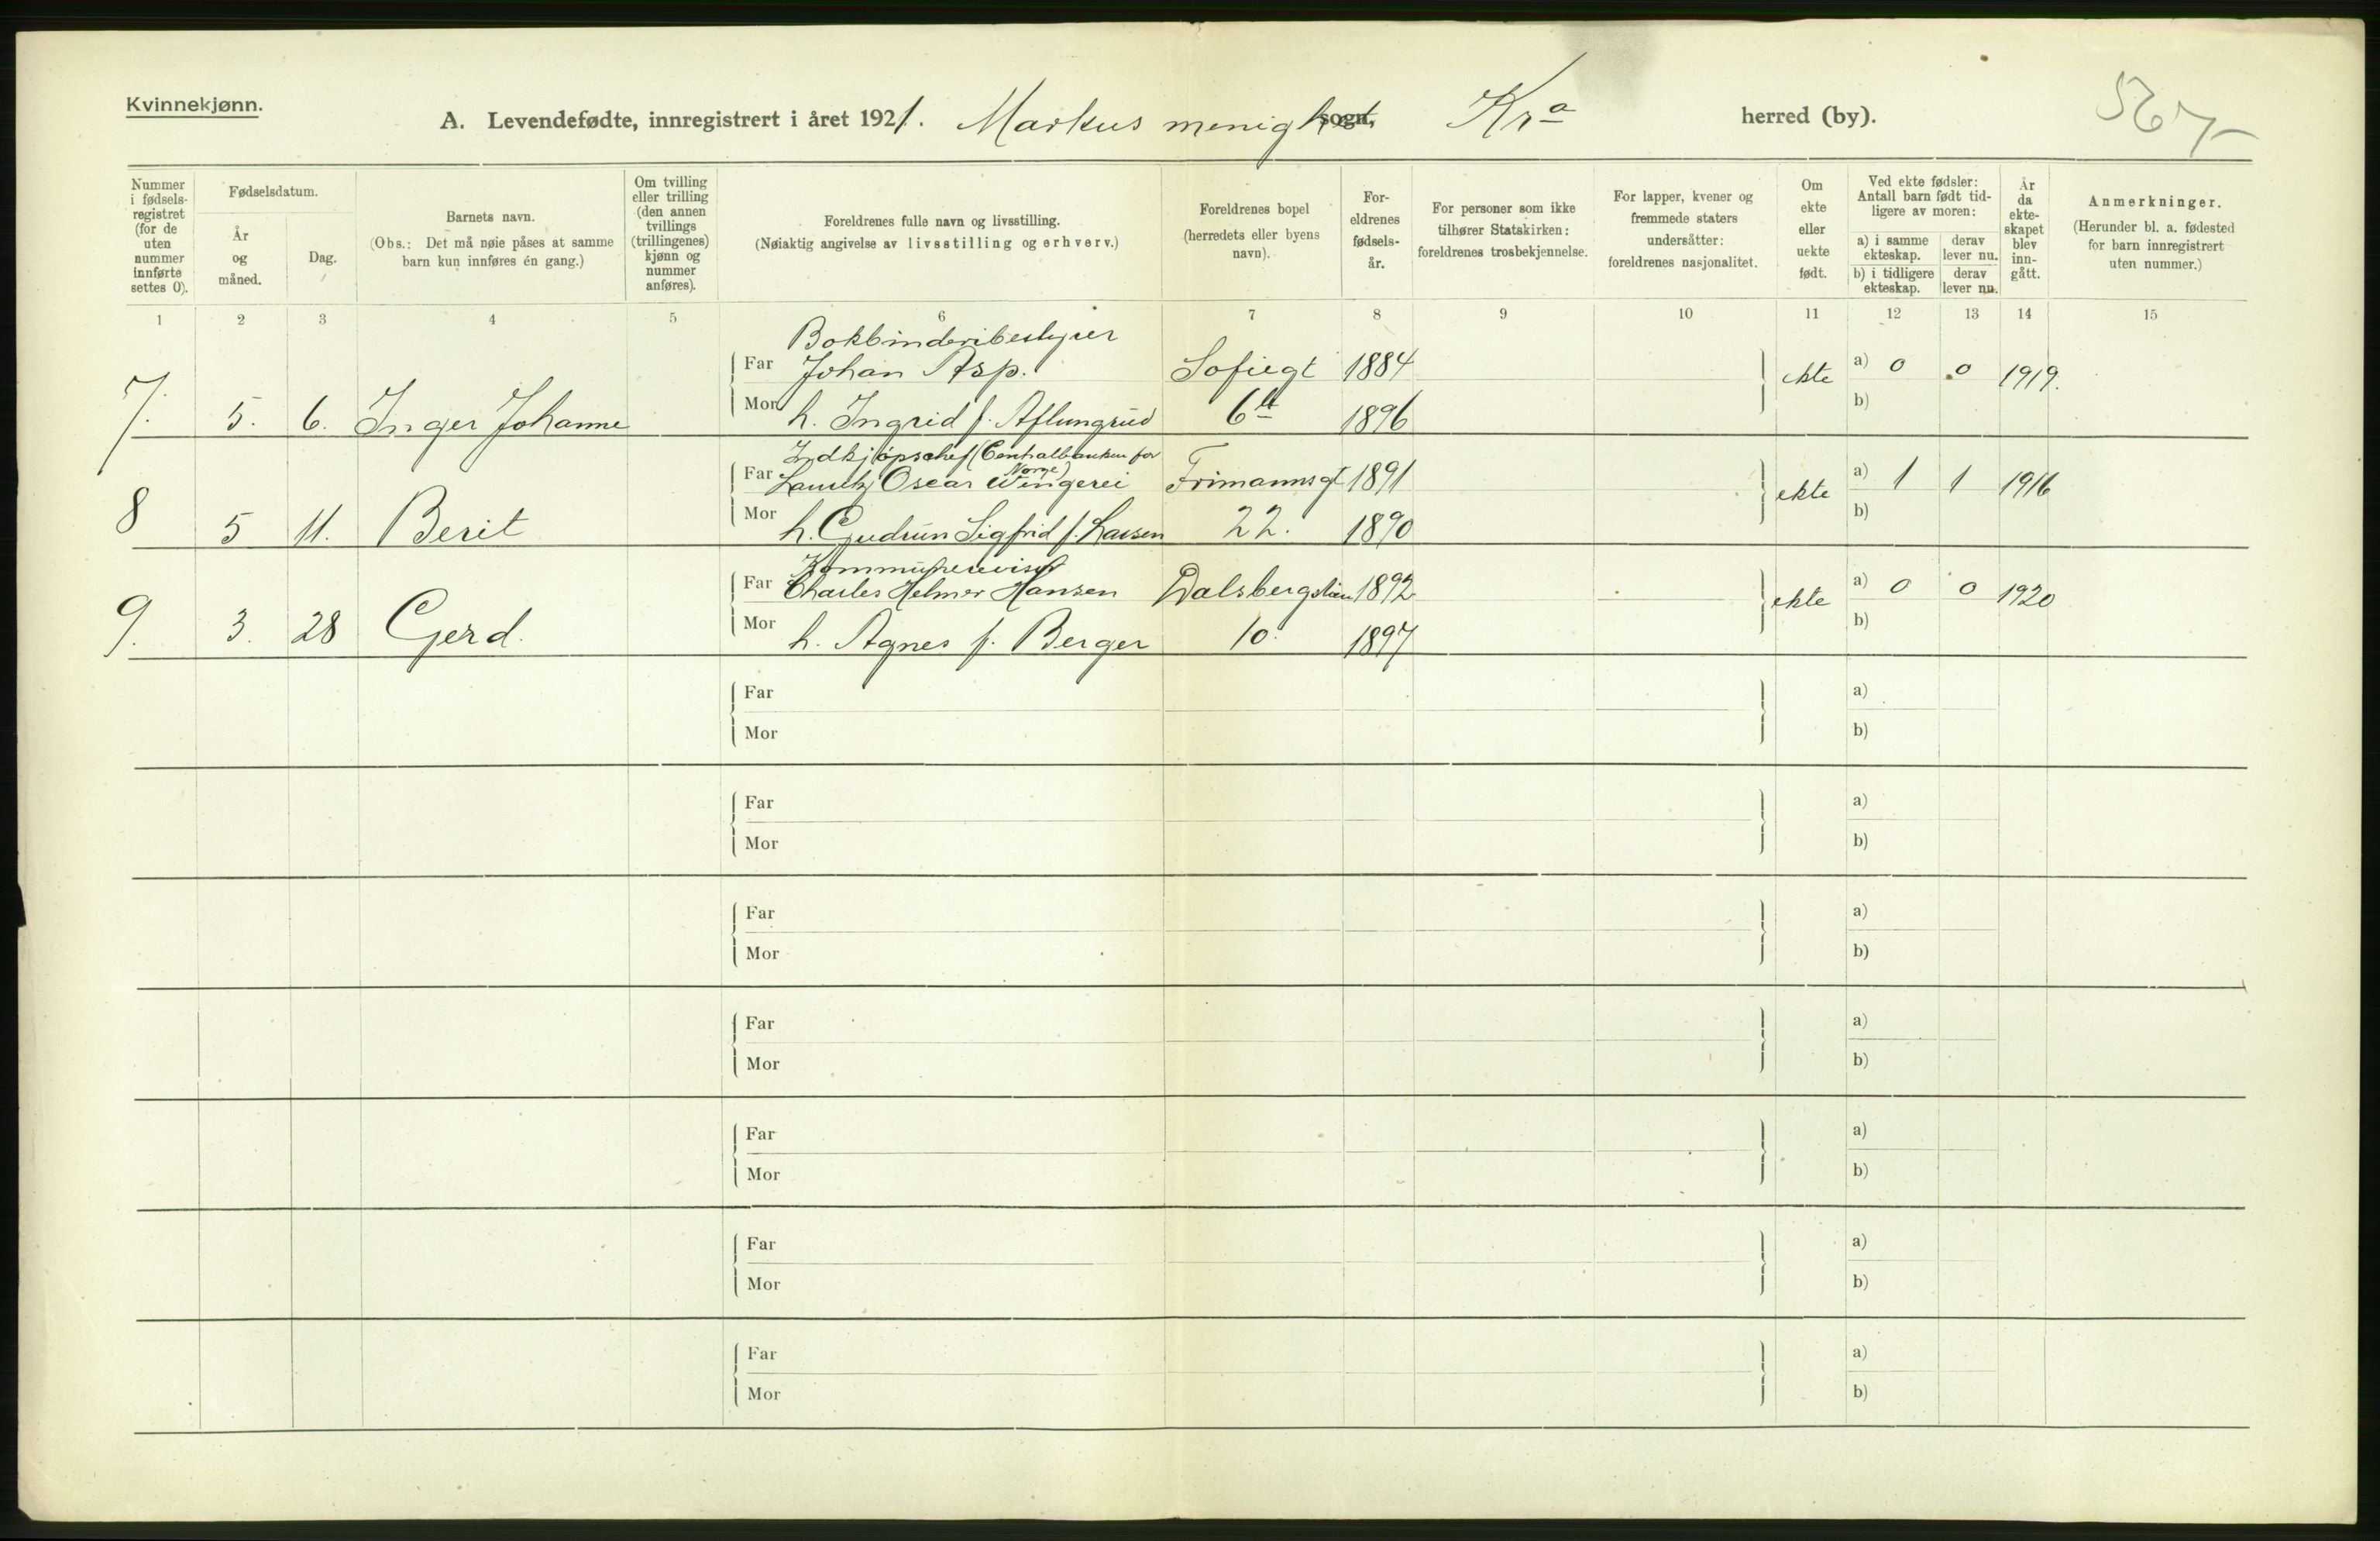 Kvinnekjønn.
A. Levendefødte, innregistrert i året 1921. Markus menigh sogn, Kra herred (by).
567
Nummer i fødselsregistret (for de uten nummer innførte settes 0).
Fødselsdatum.
År og måned.
Dag.
Barnets navn.
(Obs.: Det må nøie påses at samme barn kun innføres én gang.)
Om tvilling eller trilling (den annen tvillings (trillingenes) kjønn og nummer anføres).
Foreldrenes fulle navn og livsstilling.
(Nøiaktig angivelse av livsstilling og erhverv.)
Foreldrenes bopel (herredets eller byens navn).
Foreldrenes fødselsår.
For personer som ikke tilhører Statskirken: foreldrenes trosbekjennelse.
For lapper, kvener og fremmede staters undersåtter: foreldrenes nasjonalitet.
Om ekte eller uekte født.
Ved ekte fødsler: Antall barn født tidligere av moren:
a) i samme ekteskap.
derav lever nu.
b) i tidligere ekteskap.
derav lever nu.
År da ekteskapet blev inngått.
Anmerkninger.
(Herunder bl. a. fødested for barn innregistrert uten nummer.)
1 2 3 4 5 6 7 8 9 10 11 12 13 14 15
Bokbinderibestyrer
Far Johan Asp. Sofiegt 1884 ekte a) 0 0 1919.
7. 5. 6. Inger Johanne Mor h. Ingrid f. Aflungrud 6 1896 b)
Indkjøpschef (Centralbanken for Norge)
Far Oscar Wingerei Frimannsgt 1891 ekte a) 1 1 1916
8 5 11. Berit Mor h. Gudrun Sigfrid f. Larsen 22. 1890 b)
Kommunerevisor
Far Charles Helmer Hansen Dalsbergstien 1892 ekte a) 0 0 1920
9. 3. 28 Gerd. Mor h. Agnes f. Berger 10. 1897 b)
Far a)
Mor b)
Far a)
Mor b)
Far a)
Mor b)
Far a)
Mor b)
Far a)
Mor b)
Far a)
Mor b)
Far a)
Mor b)